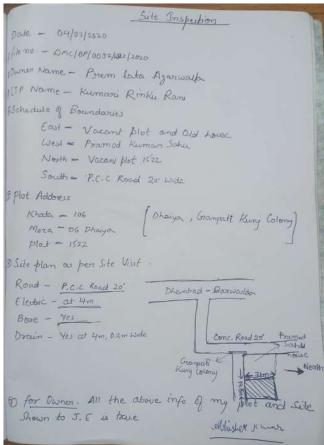 Site Inspection
Date - 04/02/2020
File no - DMC/BP/0037/2020
Owner Name - Prem lata Agarwalla
LTP Name - Kumari Rinku Rani
Schedule of Boundaries
East - Vacant plot and Old house
West - Pramod Kumar Sahu
North - Vacant plot 1522
South - P.C.C Road 20' wide
Plot Address
Khata - 106
Moza - 06 Dhaiya
Plot - 1522
[ Dhaiya, Ganpati Kunj Colony ]
Site plan as per Site Visit -
Road - P.C.C Road 20'
Electric - at 4m
Bore - Yes
Drain - Yes at 4m, 0.2m wide
Dhanbad -
Conc. Road 20'
Pramod Sahu house
North
Ganpati Kunj Colony
for Owner. All the above info of my plot and Site
Shown to J.E is true